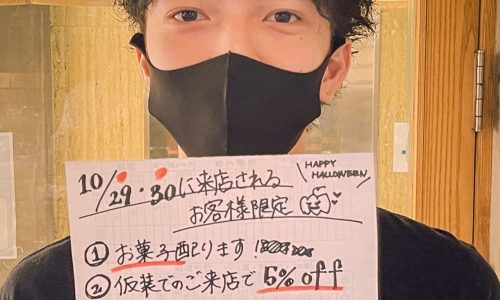 10/29・30に来店される
お客様限定
HAPPY
HALLOWEEN
① お菓子配ります!
② 仮装でのご来店で 5% off